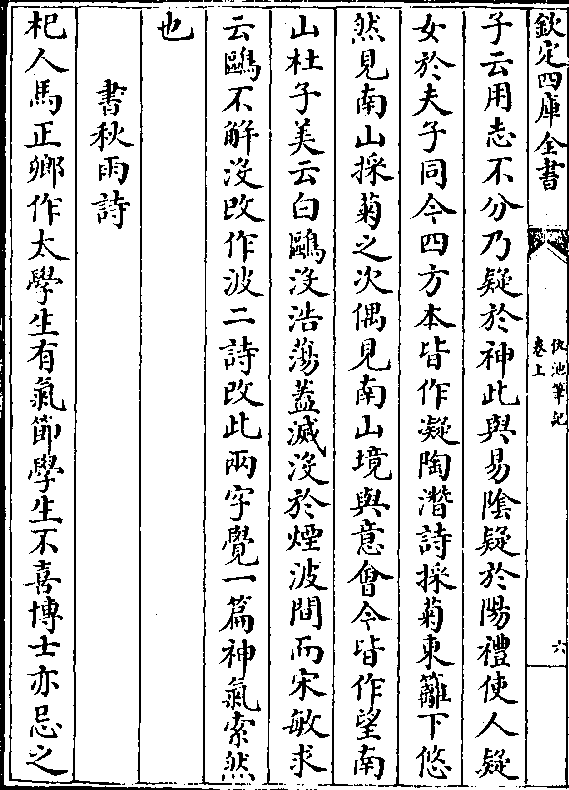 欽定四庫全書
仇池筆記
卷上
六
子云用志不分乃疑於神此與易隂疑於陽禮使人疑
女於夫子同今四方本皆作凝陶潛詩採菊東籬下悠
然見南山採菊之次偶見南山境與意會今皆作望南
山杜子美云白鷗沒浩蕩蓋滅沒於煙波間而宋敏求
云鷗不解沒改作波二詩改此兩字覺一篇神氣索然
也
書秋雨詩
杞人馬正鄉作太學生有氣節學生不喜博士亦忌之